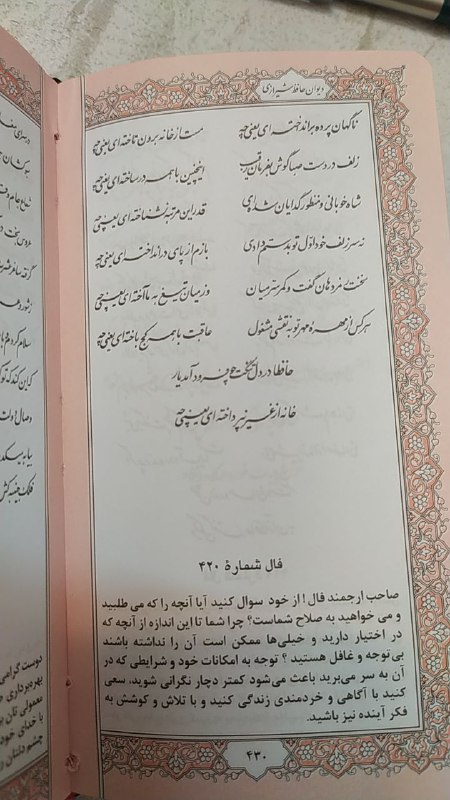 دیوان حافظ شیرازی
ناگهان پرده برانداخته‌ای یعنی چه
مست از خانه برون تاخته‌ای یعنی چه
زلف در دست صبا گوش بفرمان رقیب
اینچنین با همه در ساخته‌ای یعنی چه
شاه خوبانی و منظور گدایان شده‌ای
قدر این مرتبه نشناخته‌ای یعنی چه
نه سر زلف خود اول تو بدستم دادی
بازم از پای در انداخته‌ای یعنی چه
سخنت رمز دهان گفت و کمر سر میان
وز میان تیغ به ما آخته‌ای یعنی چه
هر کس از مهره مهر تو به نقشی مشغول
عاقبت با همه کج باخته‌ای یعنی چه
حافظا در دل تنگت چو فرود آمد یار
خانه از غیر نپرداخته‌ای یعنی چه
فال شمارهٔ ۴۲۰
صاحب ارجمند فال! از خود سوال کنید آیا آنچه را که می طلبید
و می خواهید به صلاح شماست؟ چرا شما تا این اندازه از آنچه که
در اختیار دارید و خیلی‌ها ممکن است آن را نداشته باشند
بی‌توجه و غافل هستید ؟ توجه به امکانات خود و شرایطی که در
آن به سر می‌برید باعث می‌شود کمتر دچار نگرانی شوید. سعی
کنید با آگاهی و خردمندی زندگی کنید و با تلاش و کوشش به
فکر آینده نیز باشید.
۴۳۰
دوست گرامی
بهره‌برداری
معمولی تان
با خدای خود
چشم دلتان